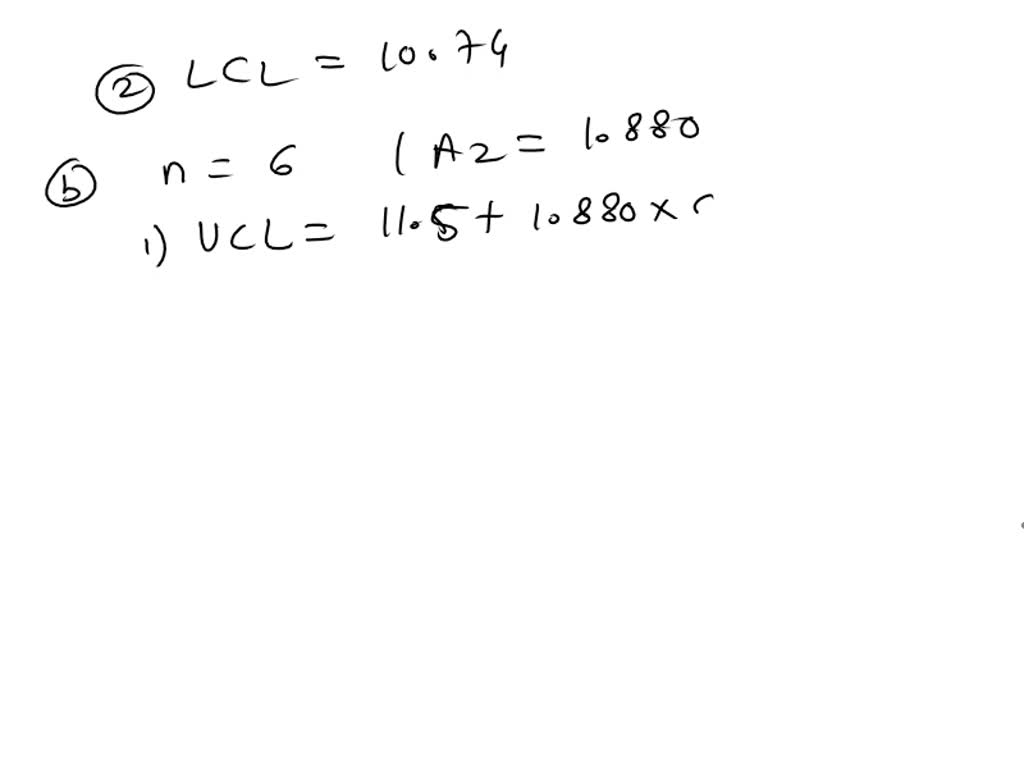 ② LCL = 10.74
ⓑ n = 6 ( A2 = 1.880
1) UCL = 11.5 + 1.880 x